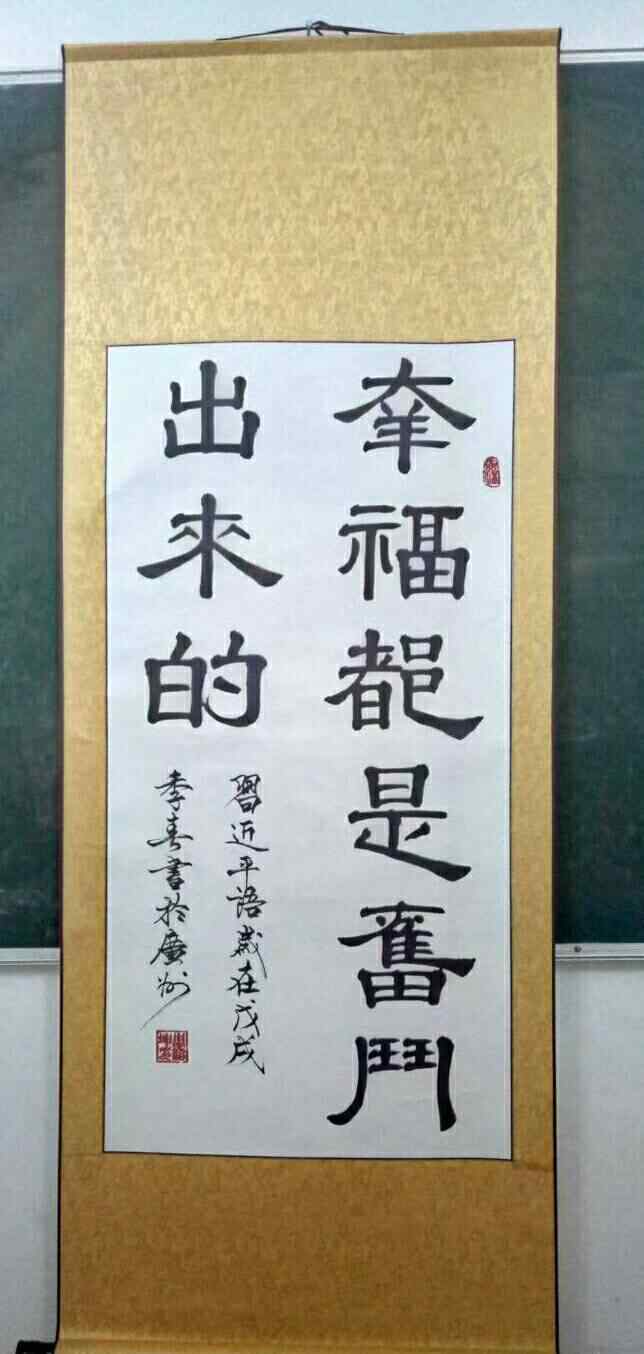 幸福都是奮鬥
出來的
習近平語歲在戊戌
季春書於廣州